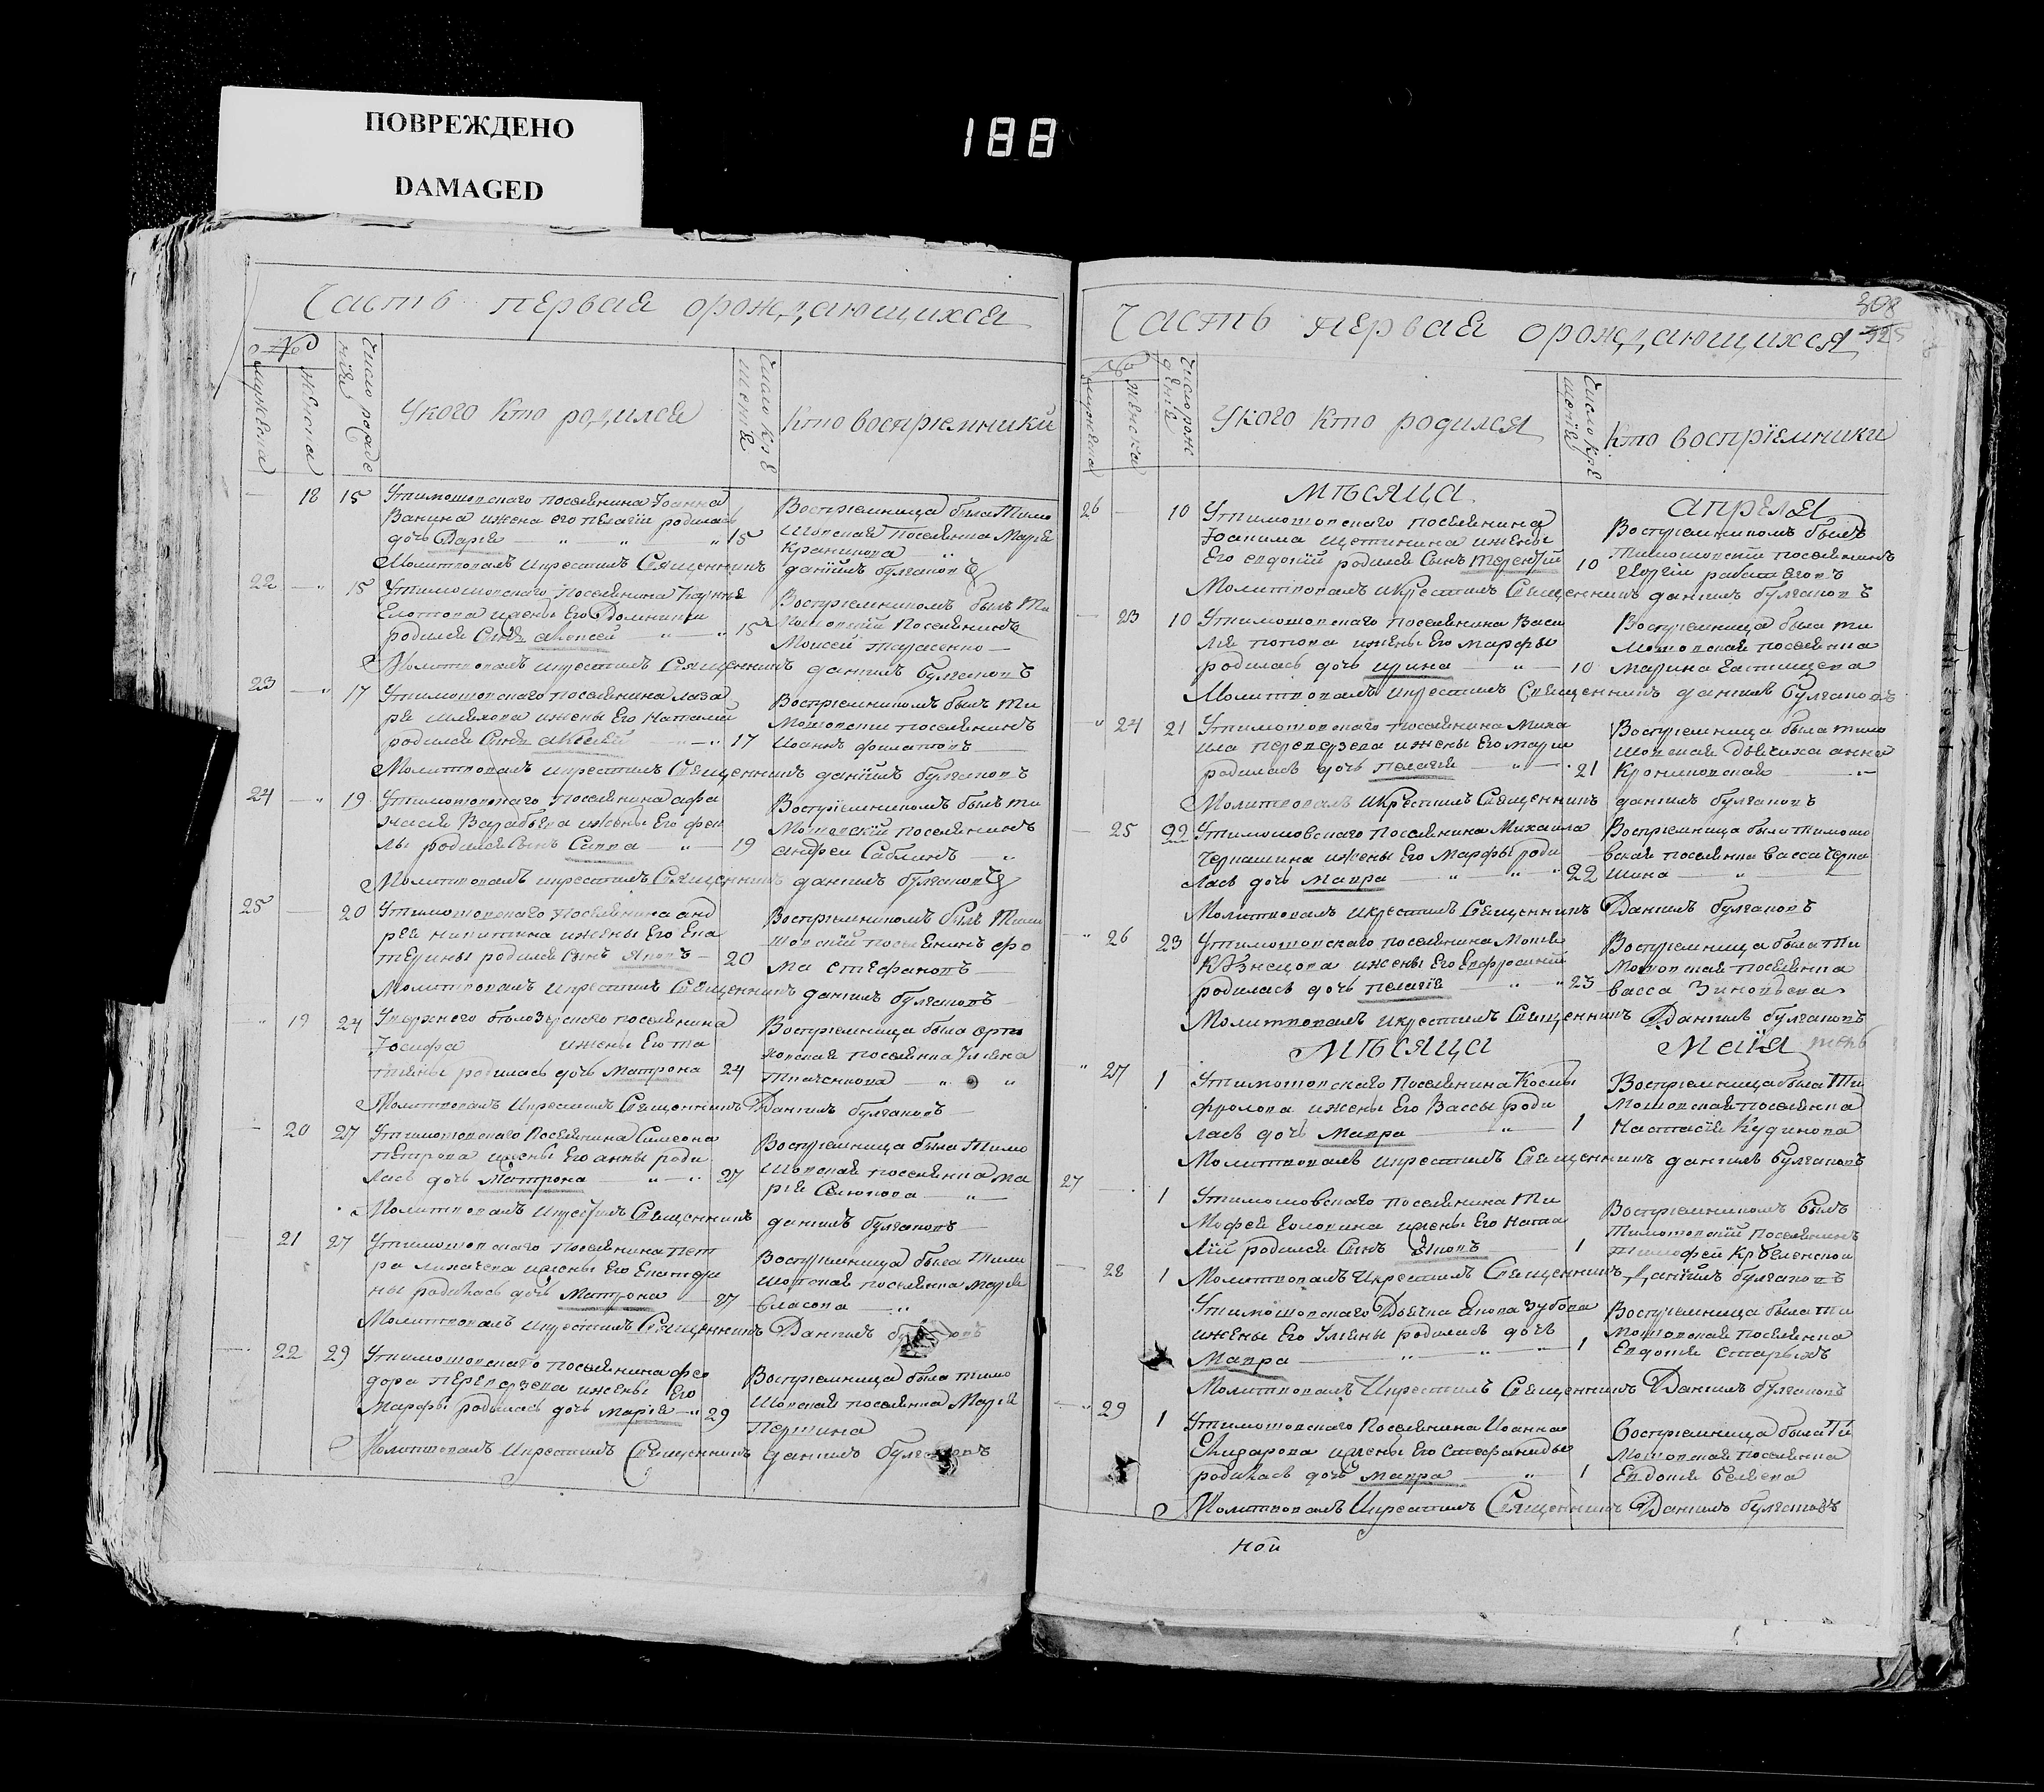 ПОВРЕЖДЕНО
DAMAGED
188
Часть первая орождающихся
№
мужеска
женска
число рожде
нiя
Укого кто родился
число кре
щенiя
кто воспрiемники
18 15 Утимошовскаго поселянина Iоанна
Ванина жена его пелагiи родилась
дочь Дарiя 15
Воспрiемница была тимо
шовская поселянка Марiя
Молитвовалъ икрестилъ Священникъ данiилъ булгаковъ
22 15 Утимошовскаго поселянина
ижены Его Домникiи
родился Сынъ алексей 15
Воспрiемникомъ былъ ти
мошовскiй поселянинъ
Моисей тарасенко
Молитвовалъ икрестилъ Священникъ данiилъ булгаковъ
23 17 Утимошовскаго поселянина лаза
ря шляхова ижены Его Наталiи
родился Сынъ алексей 17
Воспрiемникомъ былъ ти
мошовски поселянинъ
Иоаннъ филатовъ
Молитвовалъ икрестилъ Священникъ данiилъ булгаковъ
24 19 Утимошовскаго поселянина афа
насiя Варабьева ижены Его фек
лы родился Сынъ Савва 19
Воспрiемникомъ былъ ти
мошовскiй поселянинъ
андреи Саблинъ
Молитвовалъ икрестилъ Священникъ данiилъ булгаковъ
25 20 Утимошовскаго поселянина анд
рея никитина ижены Его Ека
терины родился Сынъ Яковъ 20
Воспрiемникомъ былъ тимо
шовскiй поселянинъ фо
ма стефановъ
Молитвовалъ икрестилъ Священникъ данiилъ булгаковъ
19 24 Уверхнего белозерского поселянина
Iосифа ижены Его та
тiяны родилась дочь Матрона 24
Воспрiемница была
поселянка Улiяна
Ткаченкова
Молитвовалъ икрестилъ Священникъ Данiилъ булгаковъ
20 27 Утимошовскаго Поселянина Симеона
петрова ижены Его анны роди
лась дочь Матрона 27
Воспрiемница была тимо
шовская поселянка ма
рiя Селюкова
Молитвовалъ икрестилъ Священникъ данiилъ булгаковъ
21 27 Утимошовскаго поселянина пет
ра лихачева ижены Его Екатери
ны родилась дочь Матрона 27
Воспрiемница была тимо
шовская поселянка марiя
власова
Молитвовалъ икрестилъ Священникъ Данiилъ
22 29 Утимошовскаго поселянина фео
дора переверзева ижены Его
Марфы родилась дочь марiя 29
Воспрiемница была тимо
шовская поселянка Марiя
Молитвовалъ икрестилъ Священникъ данiилъ булгаковъ
308
325
Часть первая орождающихся
№
мужеска
женска
число рож
денiя
Укого кто родился
число кре
щенiя
кто воспрiемники
Мѣсяца апреля
26 10 Утимошовскаго поселянина
Iоакима щетинина ижены
Его евдокiи родился Сынъ терентiй 10
Воспрiемникомъ былъ
тимошовскiй поселянинъ
Молитвовалъ икрестилъ Священникъ данiилъ булгаковъ
23 10 Утимошовскаго поселянина Васи
лiя попова ижены Его марфы
родилась дочь ирина 10
Воспрiемница была ти
мошовская поселянка
марина Евтищева
Молитвовалъ икрестилъ Священникъ данiилъ булгаковъ
24 21 Утимошовскаго поселянина миха
ила переверзева ижены Его марiи
родилась дочь пелагiя 21
Воспрiемница была тимо
шовская дьячиха анна
Молитвовалъ икрестилъ Священникъ данiилъ булгаковъ
25 22 Утимошовскаго поселянина Михаила
Чернашина ижены Его Марфы роди
лась дочь Мавра 22
Воспрiемница были тимошо
вская поселянка васса черна
шина
Молитвовалъ икрестилъ Священникъ Данiилъ булгаковъ
26 23 Утимошовскаго поселянина Моисея
Кузнецова ижены Его Евфросинiи
родилась дочь пелагiя 23
Воспрiемница была ти
мошовская поселянка
васса Зиновьева
Молитвовалъ икрестилъ Священникъ Данiилъ булгаковъ
Мѣсяца Маiя
27 1 Утимошовскаго поселянина Космы
фролова ижены Его Вассы роди
лась дочь Мавра 1
Воспрiемница была ти
мошовская поселянка
Настасiя Кудинова
Молитвовалъ икрестилъ Священникъ данiилъ булгаковъ
27 1 Утимошовскаго поселянина ти
мофея Головина ижены Его Ната
лiи родился Сынъ Яковъ 1
Воспрiемникомъ былъ
тимошовскiй поселянинъ
тимофей
28 1 Молитвовалъ икрестилъ Священникъ Данiилъ булгаковъ
Утимошовскаго Дьячка Якова Зубова
ижены Его Улiяны родилась дочь
Мавра 1
Воспрiемница была ти
мошовская поселянка
Евдокiя старыхъ
Молитвовалъ икрестилъ Священникъ Данiилъ булгаковъ
29 1 Утимошовскаго поселянина Иоанна
ижены Его Стефаниды
родилась дочь мавра 1
Воспрiемница была ти
мошовская поселянка
Евдокiя беляева
Молитвовалъ икрестилъ Священникъ Данiилъ булгаковъ
ной